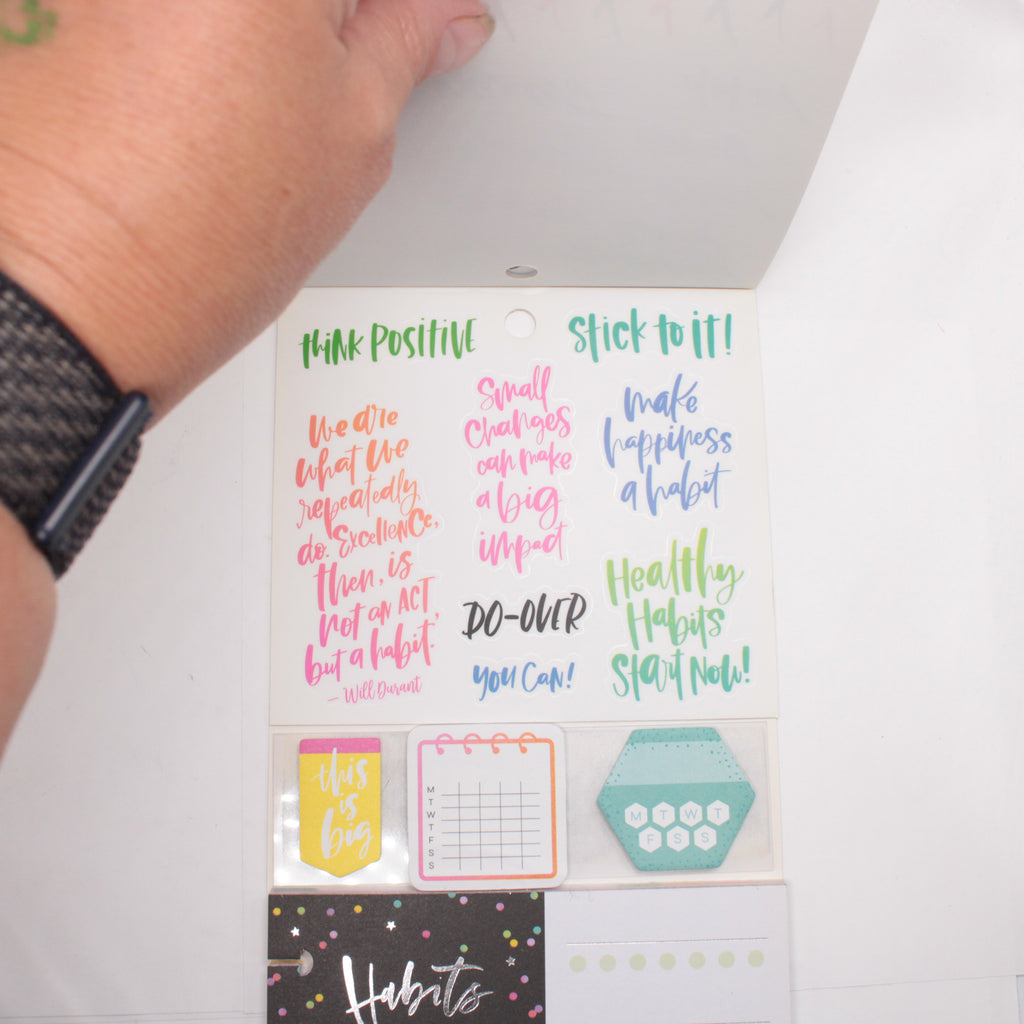 thiNK POSITIVE
Stick to it!
We are
what we
repeatedly
do. Excellence,
then, is
not an ACT,
but a habit.
— Will Durant
Small
Changes
can make
a big
impact
make
happiness
a habit
DO-OVER
you Can!
Healthy
Habits
Start Now!
this
is
big
M
T
W
T
F
S
S
M T W T
F S S
Habits